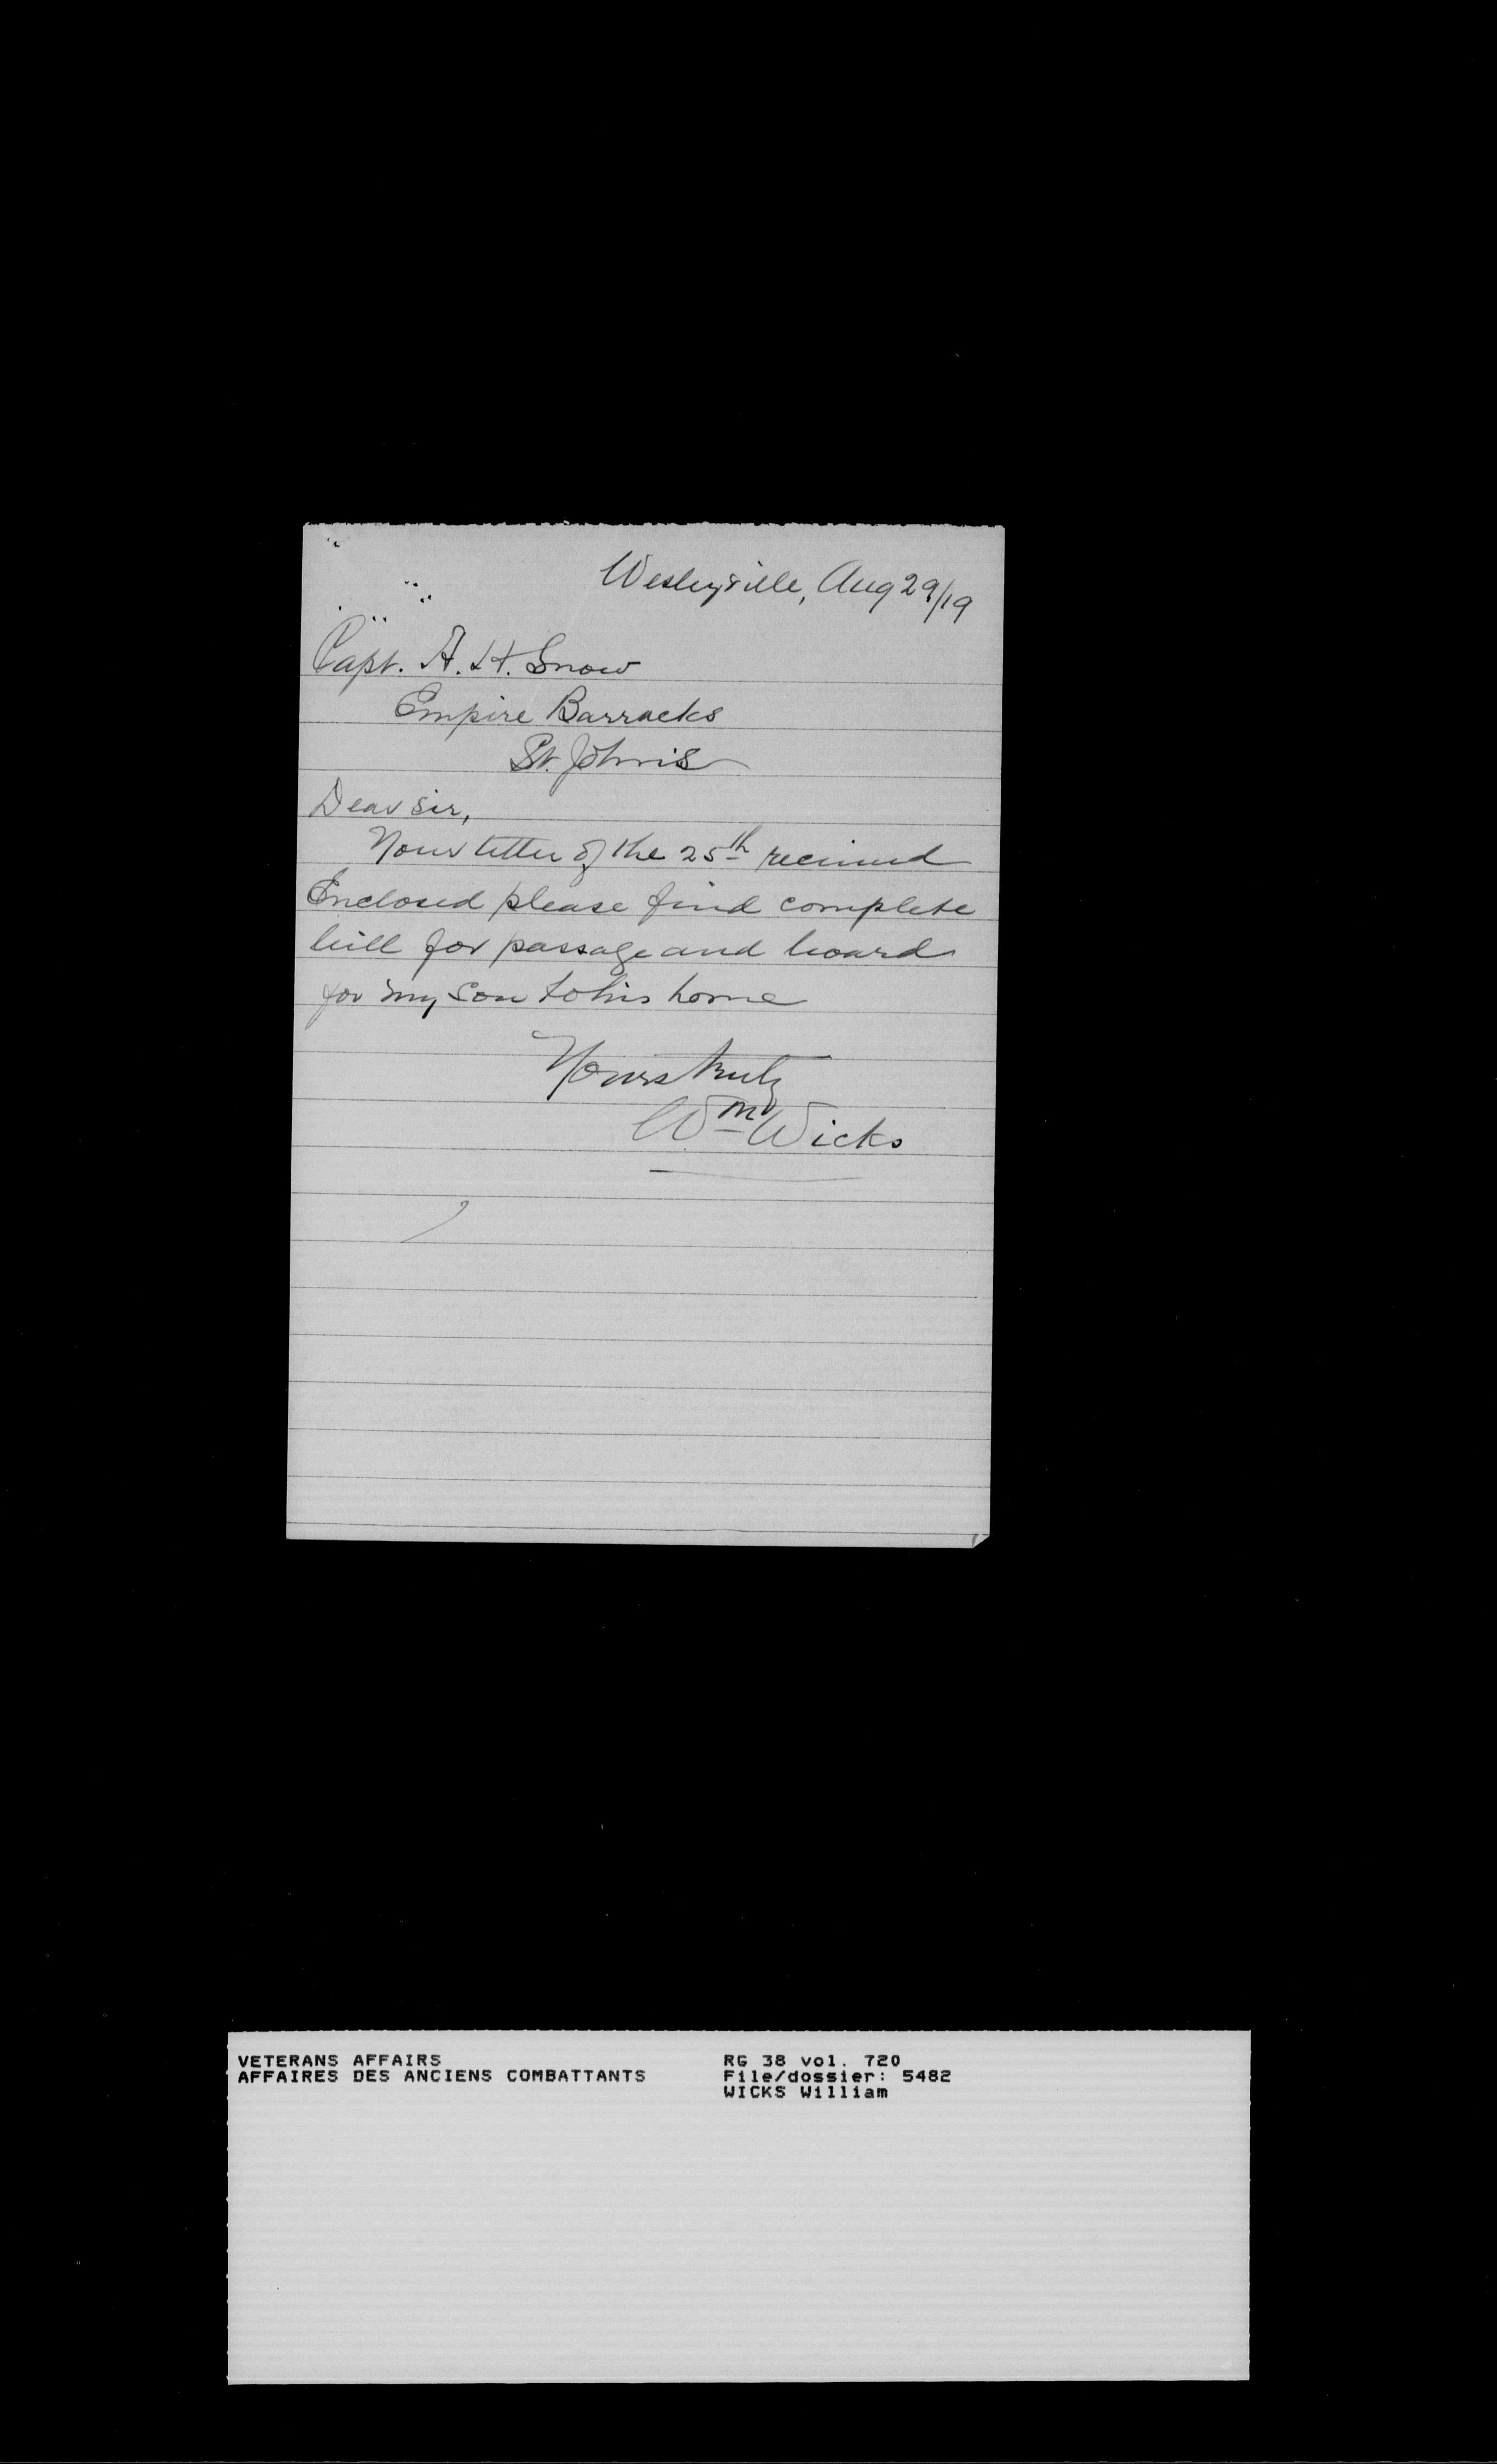 Wesleyville, Aug 29/19
Capt. A. H. Snow
Empire Barracks
St. John's
Dear Sir,
Your letter of the 25th received
Enclosed please find complete
bill for passage and board
for my son to his home
Yours truly
Wm Wicks
VETERANS AFFAIRS
AFFAIRES DES ANCIENS COMBATTANTS
RG 38 vol. 720
File/dossier: 5482
WICKS William